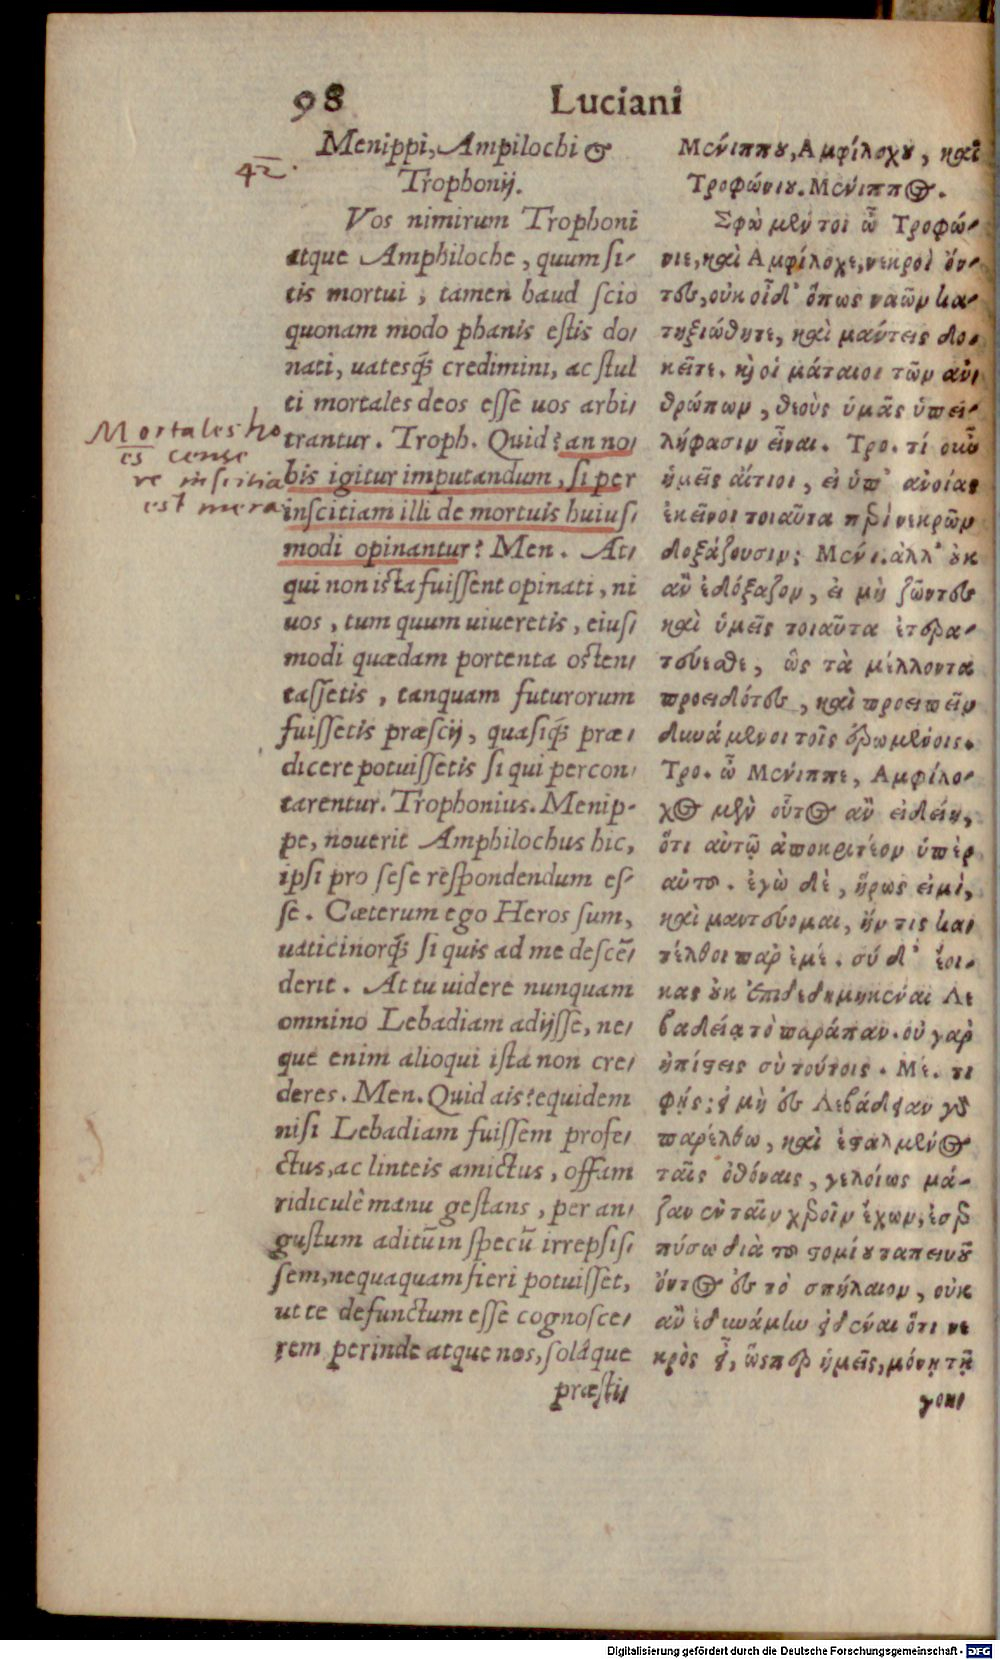 98 Luciani
Menippi, Ampilochi &
Trophonij.
Vos nimirum Trophoni
atque Amphiloche, quum si-
tis mortui, tamen haud scio
quonam modo phanis estis do-
nati, uatesq́; credimini, ac stul
ti mortales deos esse uos arbi-
trantur. Troph. Quid? an no-
bis igitur imputandum, si per
inscitiam illi de mortuis huius-
modi opinantur? Men. At-
qui non ista fuissent opinati, ni
uos, tum quum uiueretis, eius-
modi quædam portenta osten-
tassetis, tanquam futurorum
fuissetis præscij, quasiq́; præ-
dicere potuissetis si qui percon-
tarentur. Trophonius. Menip-
pe, nouerit Amphilochus hic,
ipsi pro sese respondendum es-
se. Cæterum ego Heros sum,
uaticinorq́; si quis ad me descē
derit. At tu uidere nunquam
omnino Lebadiam adijsse, ne-
que enim alioqui ista non cre-
deres. Men. Quid ais? equidem
nisi Lebadiam fuissem profe-
ctus, ac linteis amictus, offam
ridiculè manu gestans, per an-
gustum aditũ in specũ irrepsis-
sem, nequaquam fieri potuisset,
ut te defunctum esse cognosce-
rem perinde atque nos, solâque
præstij
42.
Mortales ho
es cense
re inscitia
est mera
Μενίππου, Αμφίλοχου, καὶ
Τροφώνιου. Μενίππος.
Σφὼ μέντοι ὦ Τροφώ-
νιε, καὶ Αμφίλοχε, νεκροὶ ὄν-
τες, οὐκ οἶδ' ὅπως ναῶν κα-
τηξιώθητε, καὶ μαύτεις δο-
κεῖτε. καὶ οἱ μάταιοι τῶν αν-
θρώπων, θεοὺς ὑμᾶς ὑπει-
λήφασιν εἶναι. Τρο. τί οὖν
ἡμεῖς αἴτιοι, εἰ ὑπ' ανοίας
ἐκεῖνοι τοιαῦτα περὶ νεκρῶν
δοξάζουσιν; Μενι. ἀλλ' ουκ
αν ἐδόξαζον, ει μὴ ζῶντες
καὶ ὑμεῖς τοιαῦτα ἐτερα-
τεύεσθε, ὡς τὰ μέλλοντα
προειδότες, καὶ προειπεῖν
δυνάμενοι τοῖς ἐρωμένοις.
Τρο. ὦ Μενίππε, Αμφίλο-
χος μὲν οὗτος αν εἰδείη,
ὅτι αὐτῷ ἀποκριτέον ὑπὲρ
αὐτοῦ. ἐγὼ δὲ, ἥρως εἰμὶ,
καὶ μαντεύομαι, ἤν τις κα-
τέλθοι παρ' ἐμέ. σύ δ' ἔοι-
κας ουκ ἐπιδεδημηκέναι Λε
βαδείᾳ τὸ παράπαν. οὐ γαρ
ἠπίστεις σὺ τούτοις. Μέ. τι
φῄς; εἰ μὴ ἐς Λεβάδειαν γὰρ
παρέλθω, καὶ ἐσταλμένος
ταῖς ὀθόναις, γελοίως μά-
ζαν ἐν ταῖν χεροῖν ἔχων, ἐσερ
πύσω διὰ τοῦ στομίου ταπεινοῦ
ὄντος ἐς τὸ σπήλαιον, οὐκ
αν ἐδυνάμην εἰδέναι ὅτι νε
κρὸς εἶ, ὥσπερ ἡμεῖς, μόνῃ τῇ
γοη-
Digitalisierung gefördert durch die Deutsche Forschungsgemeinschaft - DFG